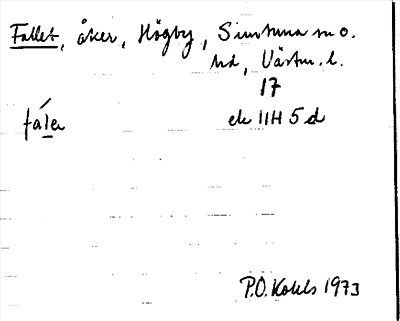 Fallet, åker, Högby, Simtuna sn o.
hd, Västm. l.
17
ek 11H 5d
P.O. Kohls 1973